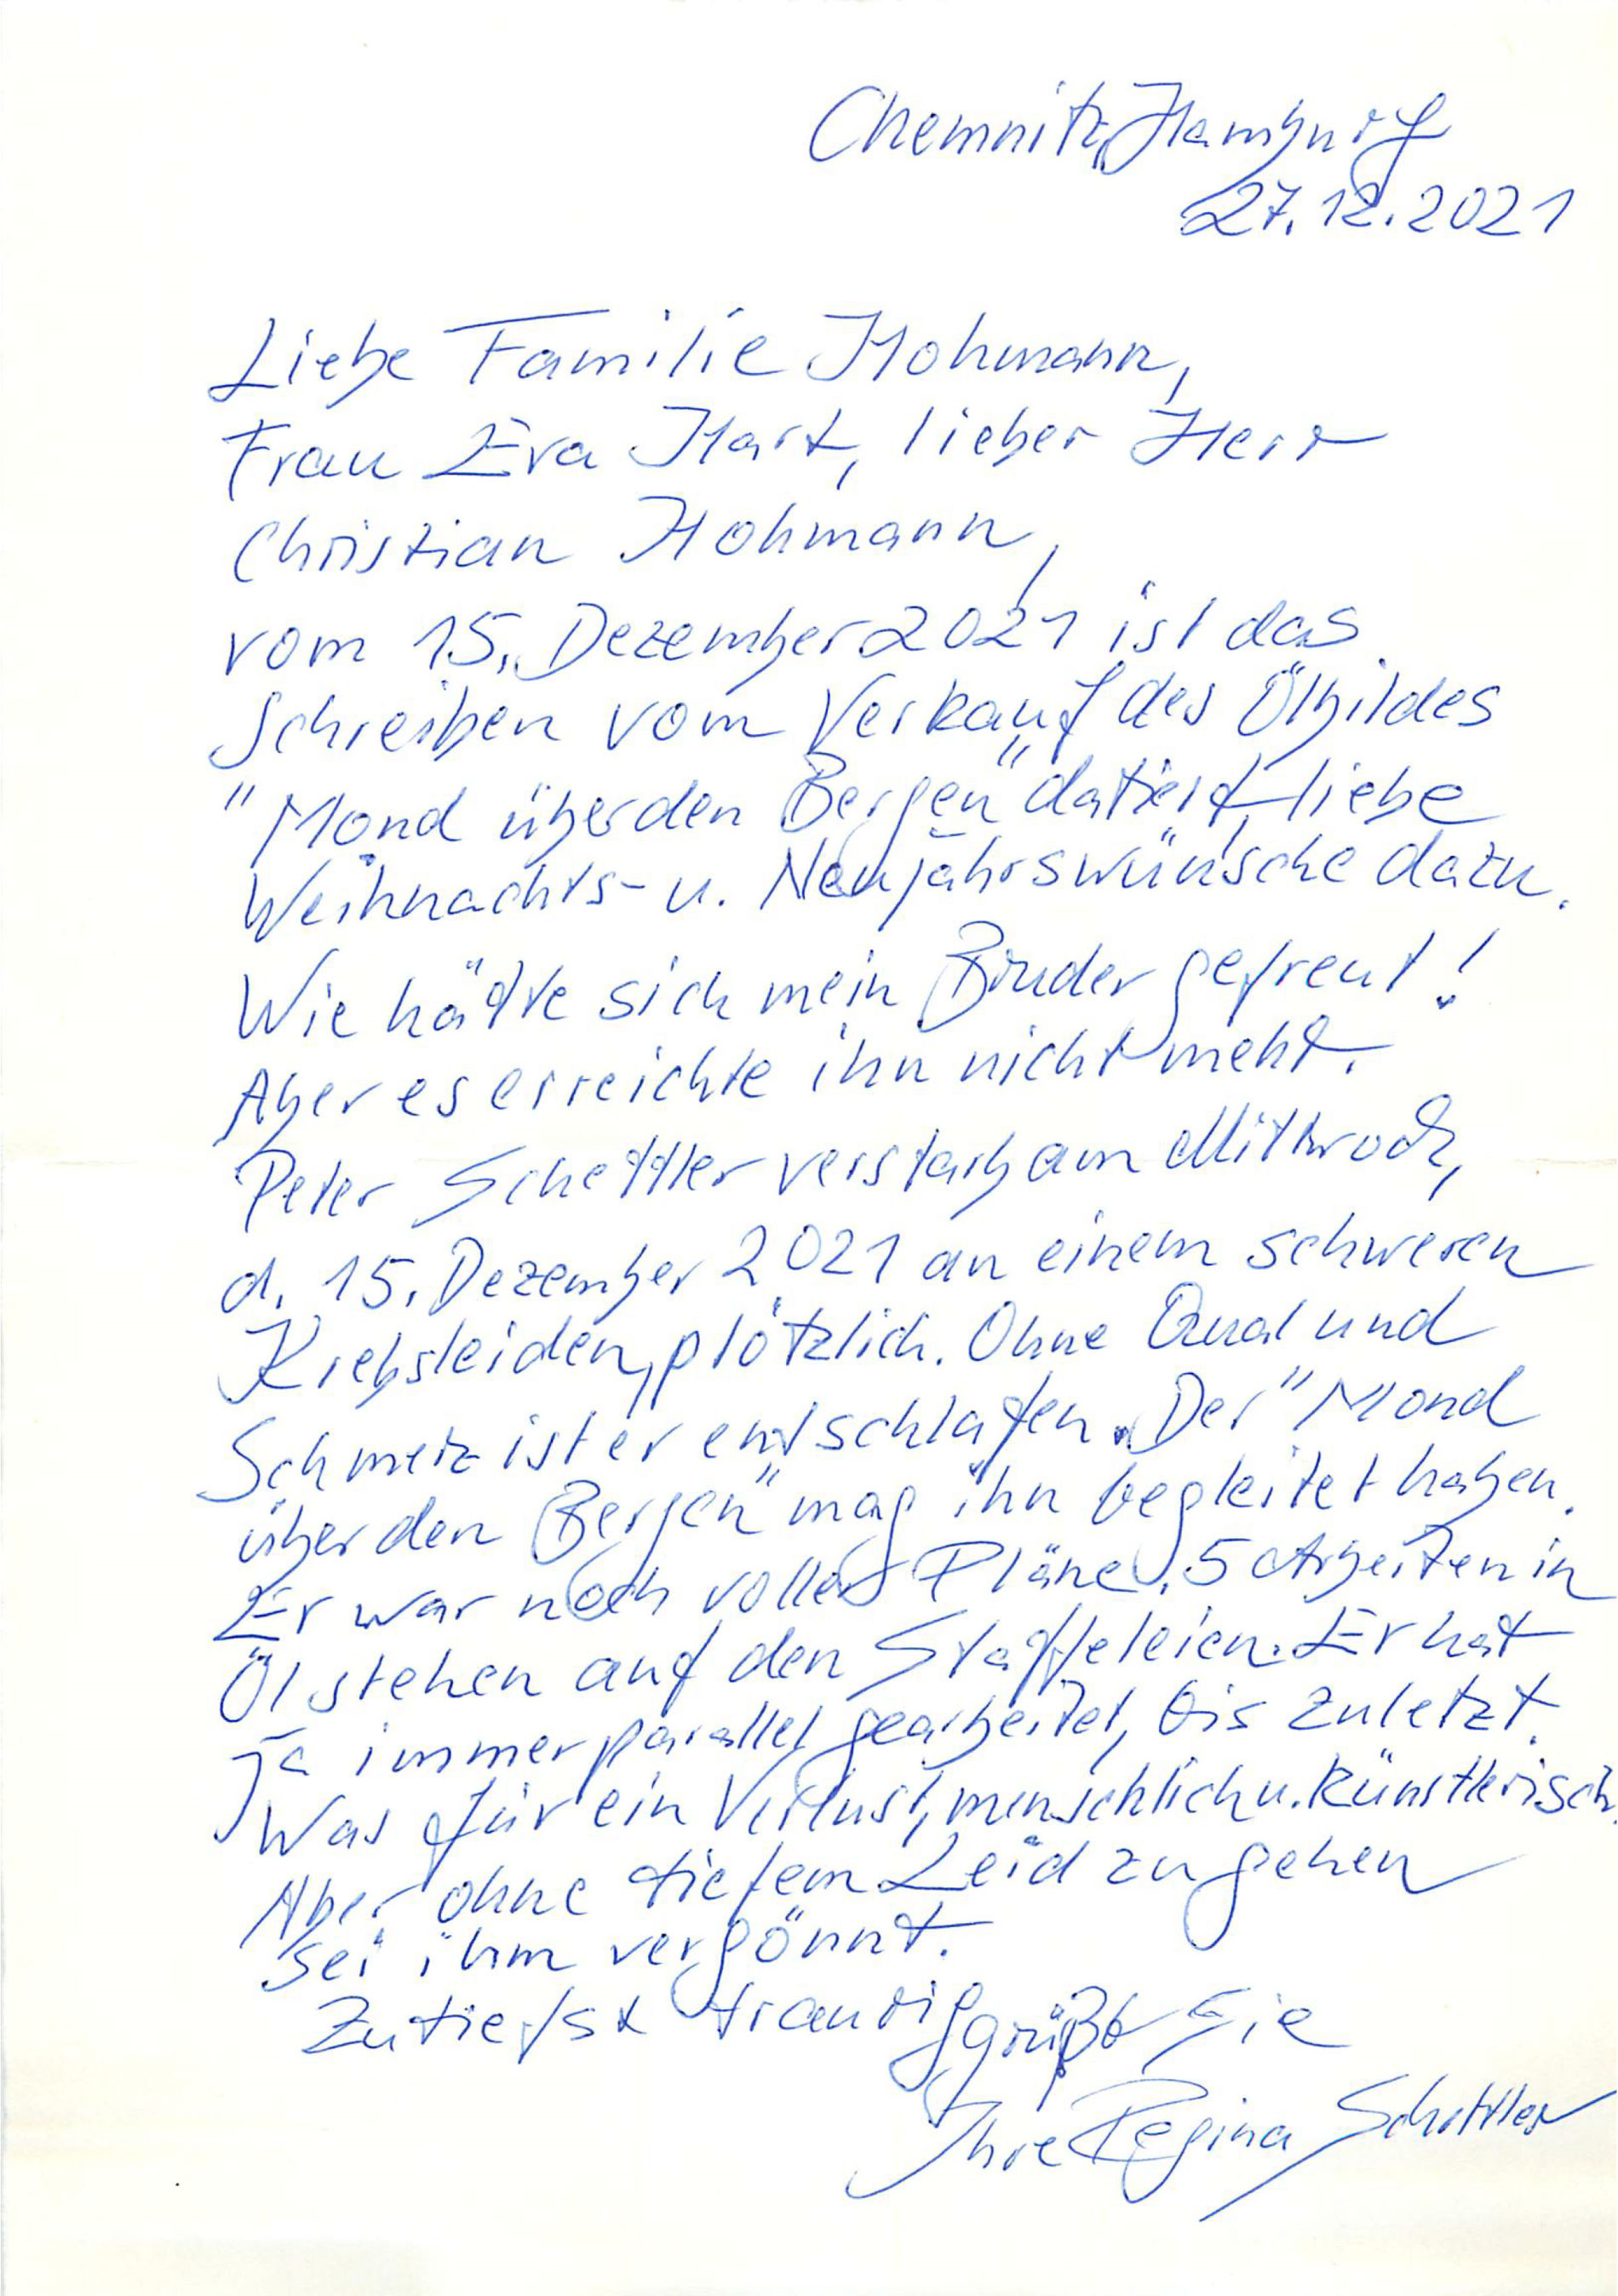 Chemnitz, Hamburg
27.12.2021
Liebe Familie Hohmann,
Frau Eva Hart, lieber Herr
Christian Hohmann,
vom 15. Dezember 2021 ist das
Schreiben vom Verkauf des Ölbildes
"Mond über den Bergen" datiert, liebe
Weihnachts- u. Neujahrswünsche dazu.
Wie hätte sich mein Bruder gefreut!
Aber es erreichte ihn nicht mehr.
Peter Schettler verstarb am Mittwoch,
d. 15. Dezember 2021 an einem schweren
Krebsleiden, plötzlich. Ohne Qual und
Schmerz ist er entschlafen. Der "Mond
über den Bergen" mag ihn begleitet haben.
Er war noch voller Pläne. 5 Arbeiten in
Öl stehen auf den Staffeleien. Er hat
ja immer parallel gearbeitet, bis zuletzt.
Was für ein Verlust, menschlich u. künstlerisch.
Aber ohne tiefem Leid zu gehen
sei ihm vergönnt.
Zutiefst traurig grüßt Sie
Ihre Regina Schettler